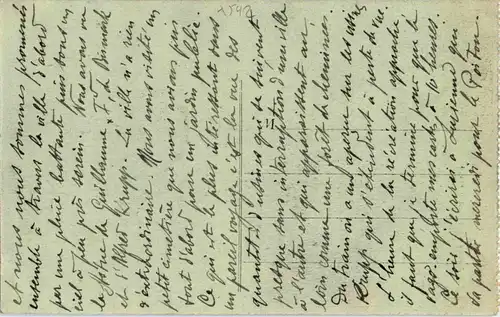 et nous nous sommes promenés
ensemble à travers la ville d'abord
par une pluie battante puis sous un
ciel à peu près serein. Nous avons vu
la statue de Guillaume I, de Bismarck
et d'Alfred Krupp. La ville n'a rien
d'extraordinaire. Nous avons visité un
petit cimetière que nous avions pris
tout d'abord pour un jardin public.
Ce qui est le plus intéressant dans
un pareil voyage c'est la vue des
quantités d'usines qui se suivent
presque sans interruption d'une ville
à l'autre et qui apparaissent au
loin comme une forêt de cheminées.
Du tram on a un aperçu sur les usines
Krupp qui s'étendent à perte de vue.
L'heure de la récréation approche
il faut que je termine pour que le
vago. emporte mes cartes à 10 heures.
Ce soir j'écrirai à Lucienne qui
va partir mardi pour le Poitou.